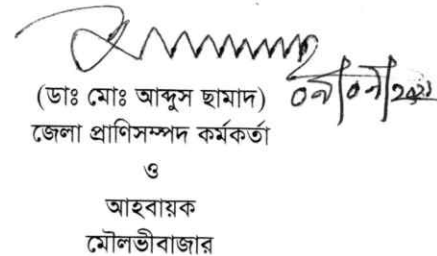 (ডাঃ মোঃ আব্দুস ছামাদ)
জেলা প্রাণিসম্পদ কর্মকর্তা
ও
আহবায়ক
মৌলভীবাজার